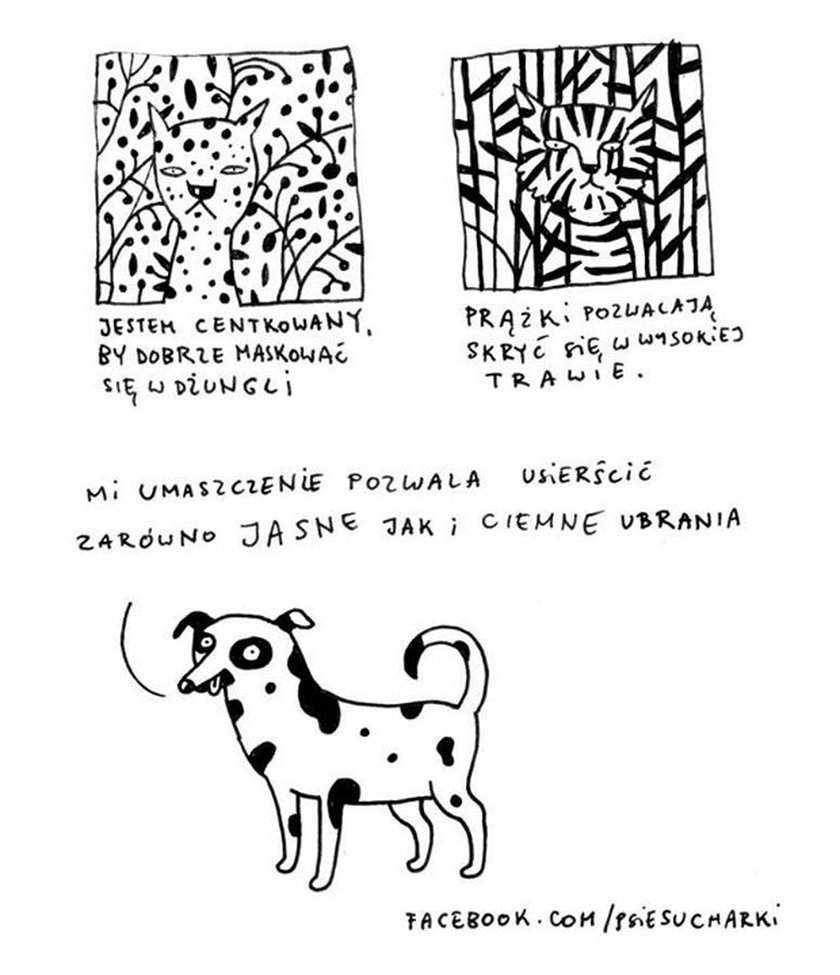 JESTEM CENTKOWANY,
BY DOBRZE MASKOWAĆ
SIĘ W DŻUNGLI
PRĄŻKI POZWALAJĄ
SKRYĆ SIĘ W WYSOKIEJ
TRAWIE.
MI UMASZCZENIE POZWALA USIERŚCIĆ
ZARÓWNO JASNE JAK I CIEMNE UBRANIA
FACEBOOK.COM/PSIESUCHARKI